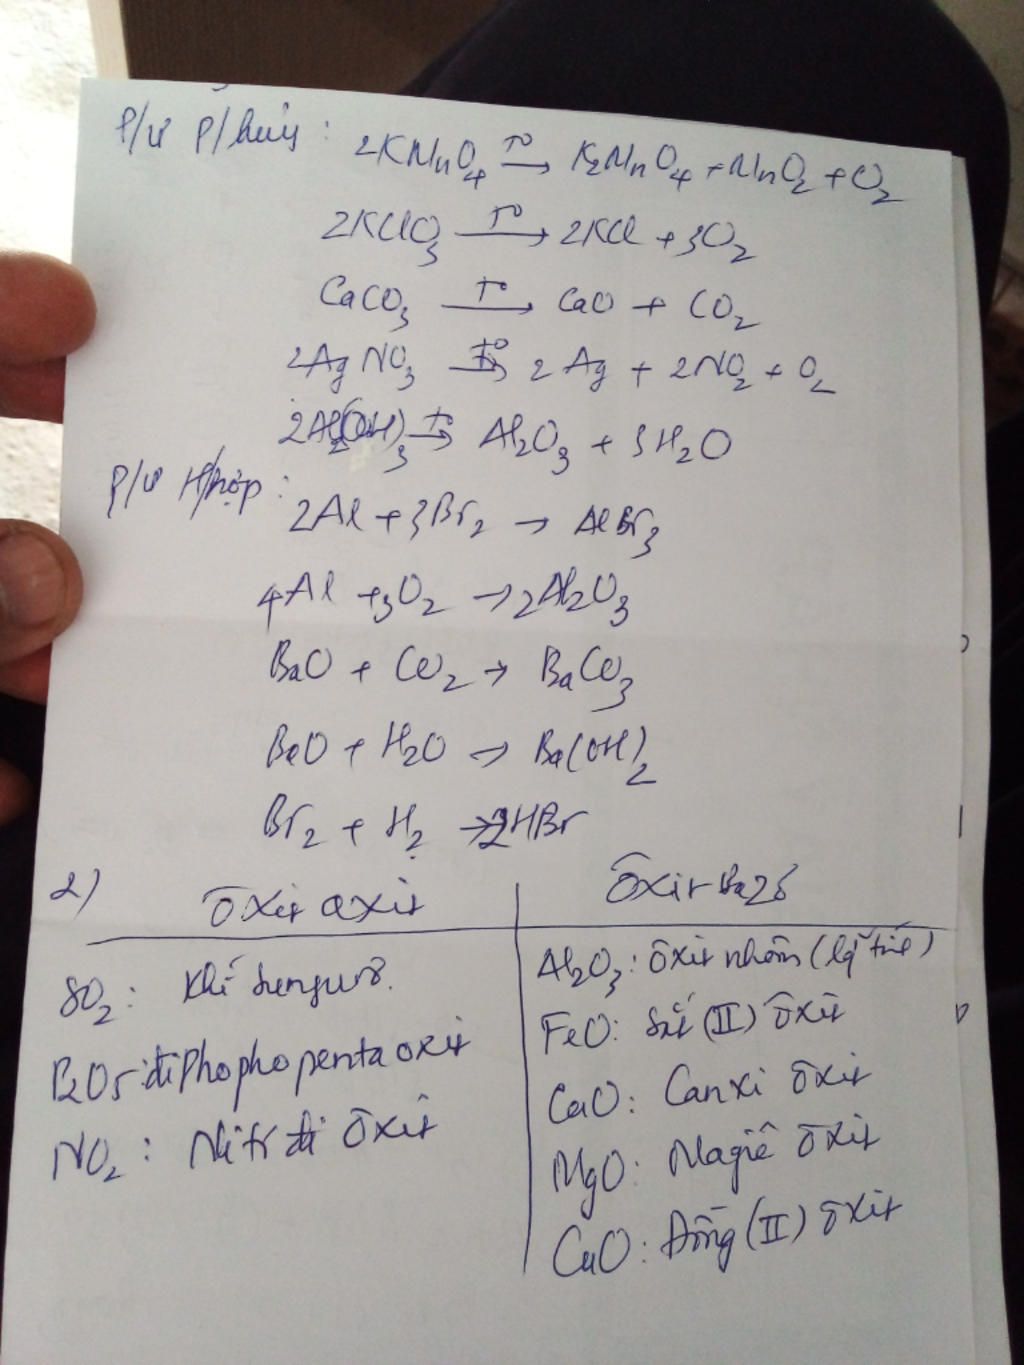 P/ư P/hủy: 2KMnO4 →(t°) K2MnO4 + MnO2 + O2
2KClO3 →(t°) 2KCl + 3O2
CaCO3 →(t°) CaO + CO2
2AgNO3 →(t°) 2Ag + 2NO2 + O2
2Al(OH)3 →(t°) Al2O3 + 3H2O
P/ư H/hợp:
2Al + 3Br2 → AlBr3
4Al + 3O2 → 2Al2O3
BaO + CO2 → BaCO3
BaO + H2O → Ba(OH)2
Br2 + H2 → 2HBr
2) Ôxit axit | Ôxit Bazơ
SO2: Khí Sunfurơ. | Al2O3: Ôxit nhôm (lg tính)
P2O5: điphophopentaoxit | FeO: Sắt (II) Ôxit
NO2: Nitơ đi Ôxit | CaO: Canxi Ôxit
MgO: Magiê Ôxit
CuO: Đồng (II) Ôxit